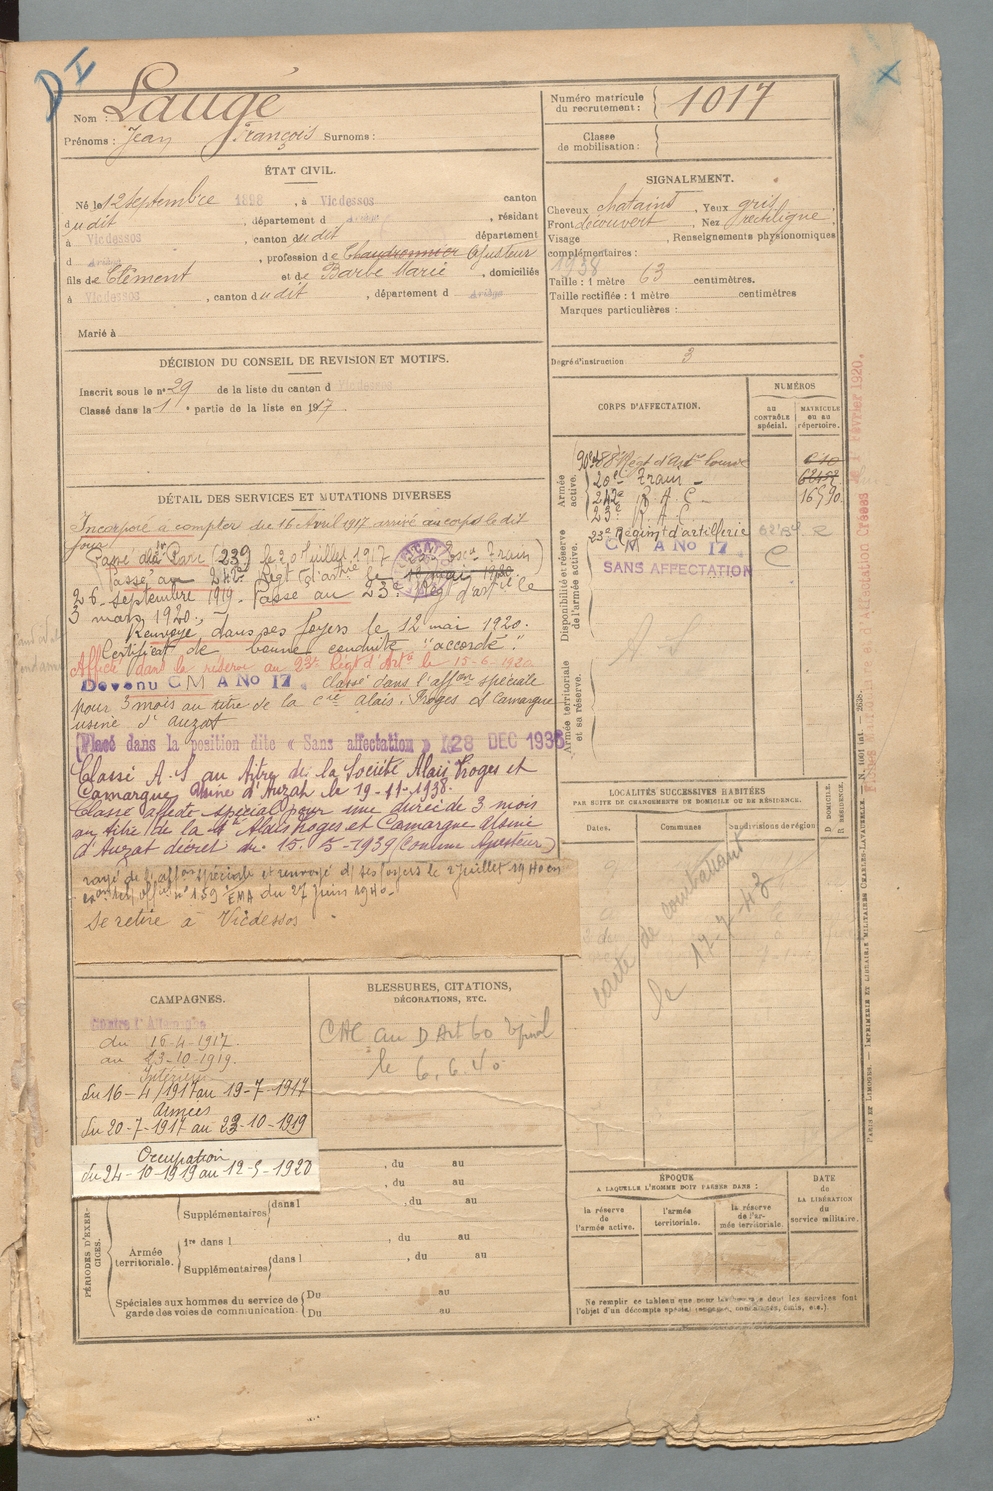 D I
Nom : Laugé
Prénoms : Jean François Surnoms :
ÉTAT CIVIL.
Né le 12 septembre 1898, à Vicdessos canton
dudit, département d Ariège, résidant
à Vicdessos, canton dudit département
d Ariège, profession de Chaudronnier Ajusteur
fils de Clément et de Barbe Marie, domiciliés
à Vicdessos, canton dudit, département d Ariège
Marié à
DÉCISION DU CONSEIL DE REVISION ET MOTIFS.
Inscrit sous le n° 29 de la liste du canton d Vicdessos
Classé dans la 1e partie de la liste en 1917
DÉTAIL DES SERVICES ET MUTATIONS DIVERSES
Incorporé à compter du 16 Avril 1917 arrivé au corps le dit
jour
Passé au Parc 239 le 20 Juillet 1917
Passé au 242e Régt d'artie le 10 mai 1920
26 septembre 1919. Passé au 23e Rég d'artillerie
3 mars 1920.
Renvoyé dans ses foyers le 12 mai 1920.
Certificat de bonne conduite "accordé".
Affecté dans la réserve au 23e Régt d'Artie le 15-6-1920
Devenu C M A No 17. classé dans l'affon spéciale
pour 3 mois au titre de la Cie Alais, Froges et Camargue
usine d'Auzat
Placé dans la position dite « Sans affectation » le 28 DEC 1936
Classé A.S au titre de la Société Alais Froges et
Camargue Usine d'Auzat le 19-11-1938.
Classé affecté spécial pour une durée de 3 mois
au titre de la Alais Froges et Camargue Usine
d'Auzat décret du 15.5-1939 (Comme Ajusteur)
rayé de l'affon spéciale et renvoyé ds ses foyers le 2 Juillet 1940 en
n° 159 EMA du 27 Juin 1940.
Se retire à Vicdessos
CAMPAGNES.
Contre l'Allemagne
du 16-4-1917
au 23-10-1919.
Intérieur
du 16-4-1917 au 19-7-1917
Armées
du 20-7-1917 au 23-10-1919
Occupation
du 24-10-1919 au 12-5-1920
BLESSURES, CITATIONS,
DÉCORATIONS, ETC.
CAC au D Art 60 Epinal
le 6.6.40
PÉRIODES D'EXERCICES.
, du au
, du au
Supplémentaires dans l , du au
Armée territoriale.
1re dans l , du au
Supplémentaires dans l , du au
Spéciales aux hommes du service de
garde des voies de communication.
Du au
Du au
Numéro matricule
du recrutement : 1017
Classe
de mobilisation :
SIGNALEMENT.
Cheveux chatains, Yeux gris,
Front découvert, Nez rectiligne,
Visage , Renseignements physionomiques
complémentaires :
1938
Taille : 1 mètre 63 centimètres.
Taille rectifiée : 1 mètre centimètres
Marques particulières :
Degré d'instruction : 3
CORPS D'AFFECTATION.
NUMÉROS
au
CONTRÔLE
spécial.
MATRICULE
ou au
répertoire.
Armée active.
Régt d'Artie lourde
20e Train
242e R.A.C. 16570
23e R.A.C.
Disponibilité et réserve de l'armée active.
23e Régiment d'artillerie R
C M A No 17. C
SANS AFFECTATION
A-S
Armée territoriale et sa réserve.
LOCALITÉS SUCCESSIVES HABITÉES
PAR SUITE DE CHANGEMENTS DE DOMICILE OU DE RÉSIDENCE.
Dates.
Communes
Subdivisions de région
D. DOMICILE.
R. RÉSIDENCE.
carte de combattant
le 17-7-43
ÉPOQUE
A LAQUELLE L'HOMME DOIT PASSER DANS :
la réserve
de
l'armée active.
l'armée
territoriale.
la réserve
de l'armée territoriale.
DATE
de
LA LIBÉRATION
du
service militaire.
Ne remplir ce tableau que pour les hommes dont les services font
l'objet d'un décompte spécial (engagés, condamnés, omis, etc.).
PARIS ET LIMOGES. — IMPRIMERIE ET LIBRAIRIE MILITAIRES CHARLES-LAVAUZELLE. — N. 1001 int. — 2638.